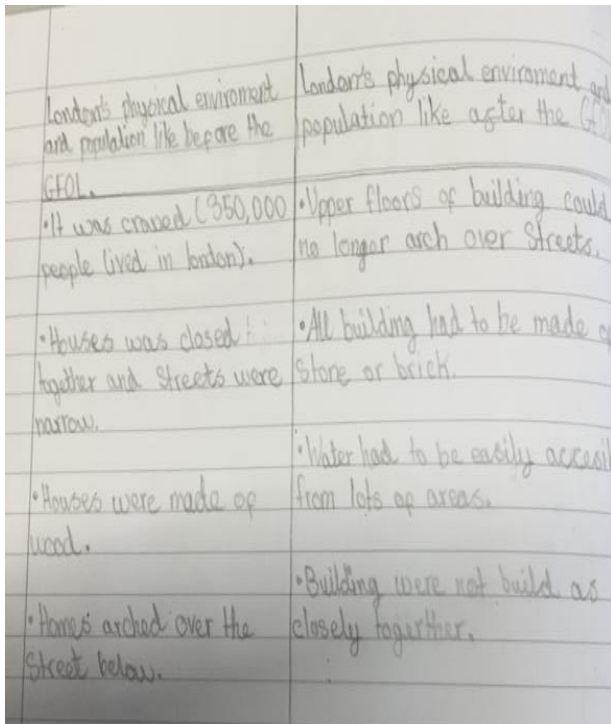 London's physical enviroment
and population like before the
GFOL.
• It was craved (350,000
people lived in london).
• Houses was closed
together and streets were
narrow.
• Houses were made of
wood.
• Homes arched over the
Street below.
London's physical enviroment and
population like after the
• Upper floors of building could
no longer arch over Streets.
• All building had to be made of
Stone or brick.
• Water had to be easily
from lots of areas.
• Building were not build as
closely togerther.